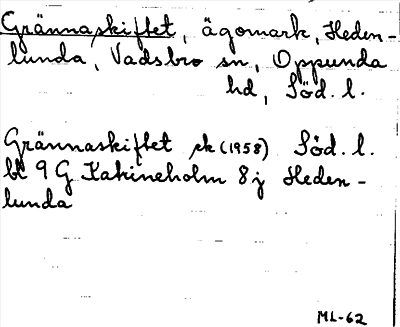 Grännaskiftet, ägomark, Heden-
lunda, Vadsbro sn, Oppunda
hd, Söd. l.
Grännaskiftet ek (1958) Söd. l.
bl 9 G Katrineholm 8 j Heden-
lunda
ML-62